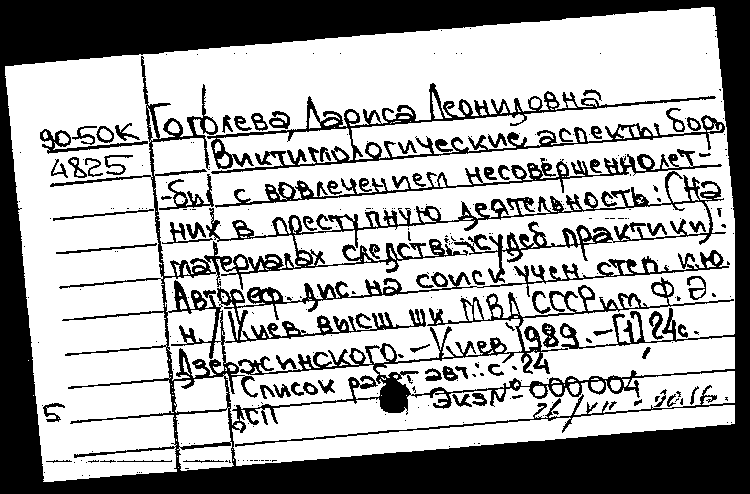 90-50К Гоголева, Лариса Леонидовна
4825 Виктимологические аспекты борь-
бы с вовлечением несовершеннолет-
них в преступную деятельность: (На
материалах следств.-судеб. практики):
Автореф. дис. на соиск. учен. степ. к.ю.
н. / Киев. высш. шк. МВД СССР им. Ф.Э.
Дзержинского. – Киев, 1989. – [1] 24 с.
Список работ авт.: с. 24
5 ДСП Экз № 000004
26/VII - 90.